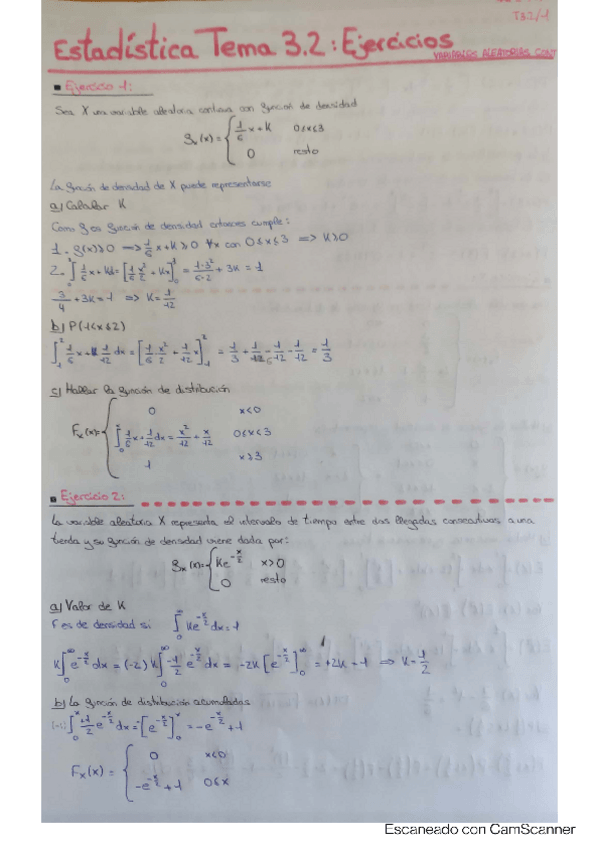 T3.2/-1
Estadística Tema 3.2: Ejercicios
VARIABLES ALEATORIAS CONT
Ejercicio 1:
Sea X una variable aleatoria continua con función de densidad
fx(x) = { 1/6 x + K 0≤x≤3
0 resto
La función de densidad de X puede representarse
a) Calcular K
Como f es función de densidad entonces cumple:
1. f(x)≥0 ⟹ 1/6 x + K ≥ 0 ∀x con 0≤x≤3 ⟹ K≥0
2. ∫ 1/6 x + K dx = [1/6 x²/2 + Kx]₀³ = 1·3²/6·2 + 3K = 1
3/4 + 3K = 1 ⟹ K = 1/12
b) P(1≤x≤2)
∫ 1/6 x + 1/12 dx = [1/6 · x²/2 + 1/12 x]₁² = 1/3 + 1/6 - 1/12 - 1/12 = 1/3
c) Hallar la función de distribución
Fx(x) = { 0 x<0
∫ 1/6 x + 1/12 dx = x²/12 + x/12 0≤x<3
1 x≥3
Ejercicio 2:
La variable aleatoria X representa el intervalo de tiempo entre dos llegadas consecutivas a una
tienda y su función de densidad viene dada por:
fx(x) = { Ke^(-x/2) x>0
0 resto
a) Valor de K
F es de densidad si ∫₀^∞ Ke^(-x/2) dx = 1
K∫₀^∞ e^(-x/2) dx = (-2)K∫₀^∞ -1/2 e^(-x/2) dx = -2K[e^(-x/2)]₀^∞ = +2K = 1 ⟹ K = 1/2
b) La función de distribución acumuladas
(-1)∫₀^x +1/2 e^(-x/2) dx = -[e^(-x/2)]₀^x = -e^(-x/2) + 1
Fx(x) = { 0 x<0
-e^(-x/2) + 1 0≤x
Escaneado con CamScanner